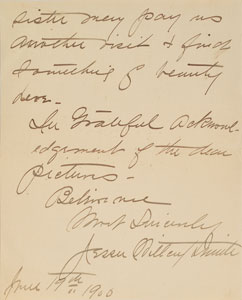 sister may pay us
another visit & find
something of beauty
here -
In Grateful Acknowl-
edgement of the dear
pictures -
Believe me
Most Sincerely
Jessie Willcox Smith
June 19th 1900